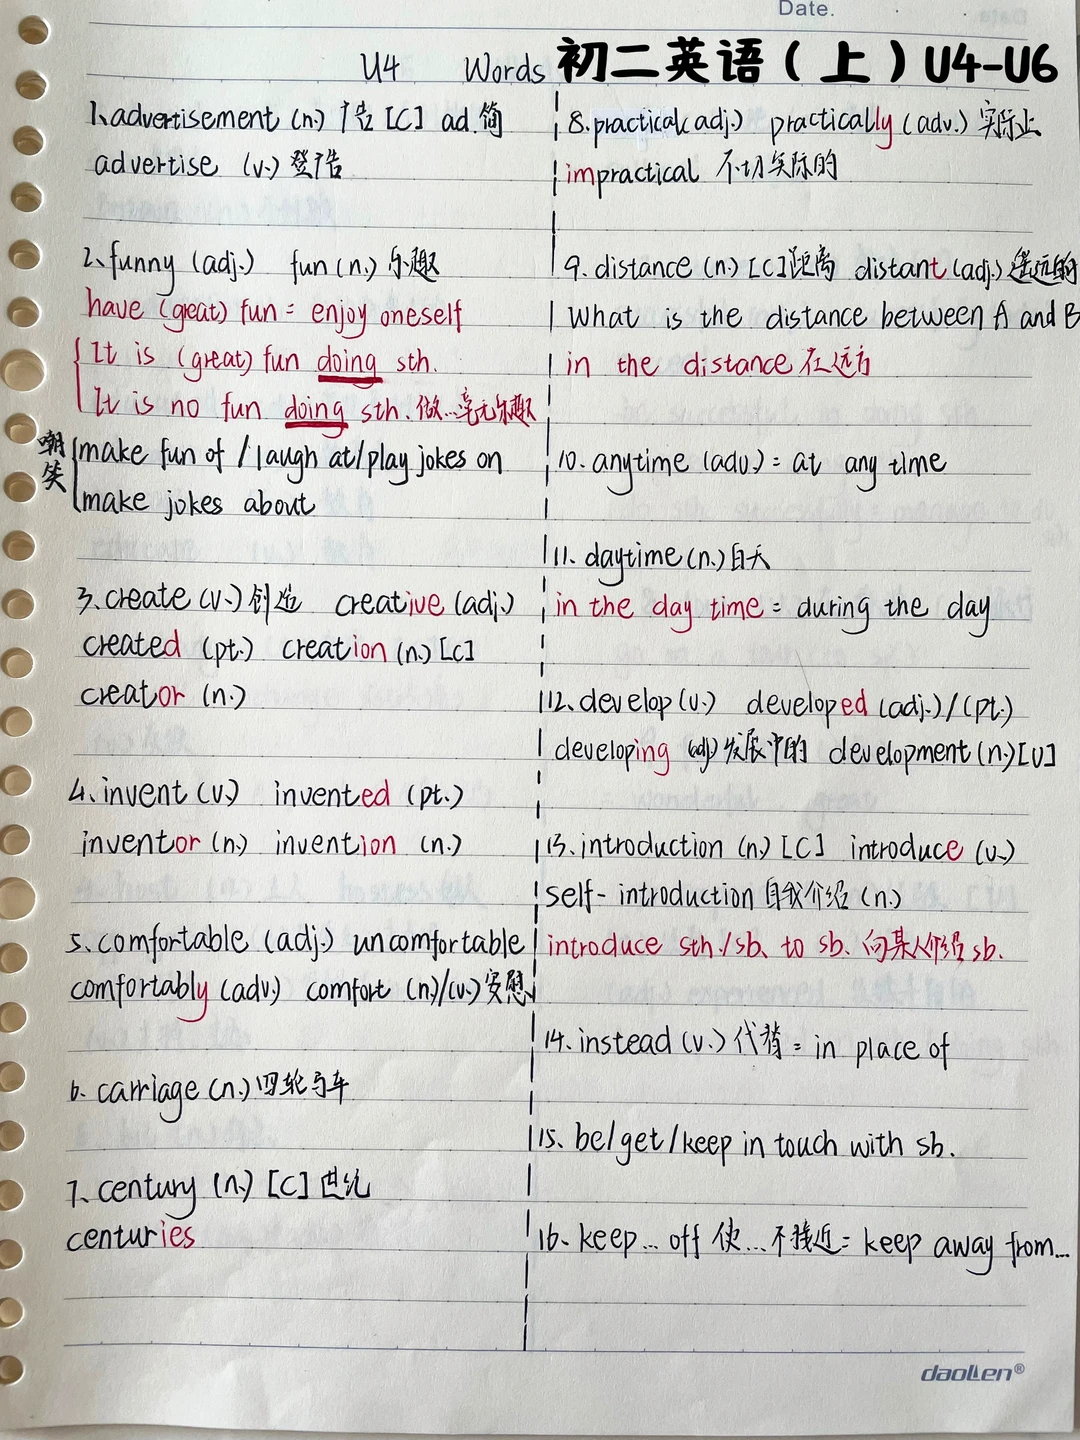 Date.
U4 Words 初二英语(上)U4-U6
1、advertisement (n.) 广告 [C] ad.简
advertise (v.) 登广告
2、funny (adj.) fun (n.) 乐趣
have (great) fun = enjoy oneself
It is (great) fun doing sth.
It is no fun doing sth. 做…毫无乐趣
嘲笑
make fun of / laugh at/play jokes on
make jokes about
3、create (v.) 创造 creative (adj.)
created (pt.) creation (n.) [C]
creator (n.)
4、invent (v.) invented (pt.)
inventor (n.) invention (n.)
5、comfortable (adj.) uncomfortable
comfortably (adv.) comfort (n.)/(v.) 安慰
6、carriage (n.) 四轮马车
7、century (n.) [C] 世纪
centuries
8.practical(adj.) practically (adv.) 实际上
impractical 不切实际的
9. distance (n.) [C]距离 distant (adj.) 遥远的
What is the distance between A and B
in the distance 在远方
10. anytime (adv.) = at any time
11. daytime (n.) 白天
in the day time = during the day
12、develop (v.) developed (adj.)/(pt.)
developing (adj) 发展中的 development (n.) [U]
13.introduction (n.) [C] introduce (v.)
self-introduction 自我介绍 (n.)
introduce sth./sb. to sb. 向某人介绍 sb.
14.instead (v.) 代替 = in place of
15、be/get/keep in touch with sb.
16、keep... off 使...不接近= keep away from...
daollen®